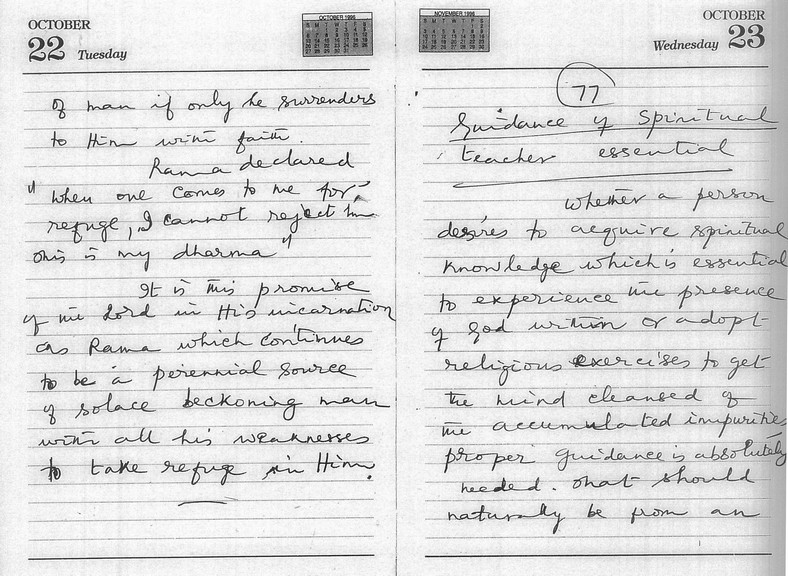 OCTOBER
22 Tuesday
OCTOBER 1996
of man if only he surrenders
to Him with faith.
Rama declared
"when one comes to me for
refuge, I cannot reject him
this is my dharma"
It is this promise
of the Lord in His incarnation
as Rama which continues
to be a perennial source
of solace beckoning man
with all his weaknesses
to take refuge in Him.
NOVEMBER 1996
OCTOBER
Wednesday 23
77
Guidance of Spiritual
teacher essential
Whether a person
desires to acquire spiritual
knowledge which is essential
to experience the presence
of God within or adopt
religious exercises to get
the mind cleansed of
the accumulated impurities
proper guidance is absolutely
needed. That should
naturally be from an